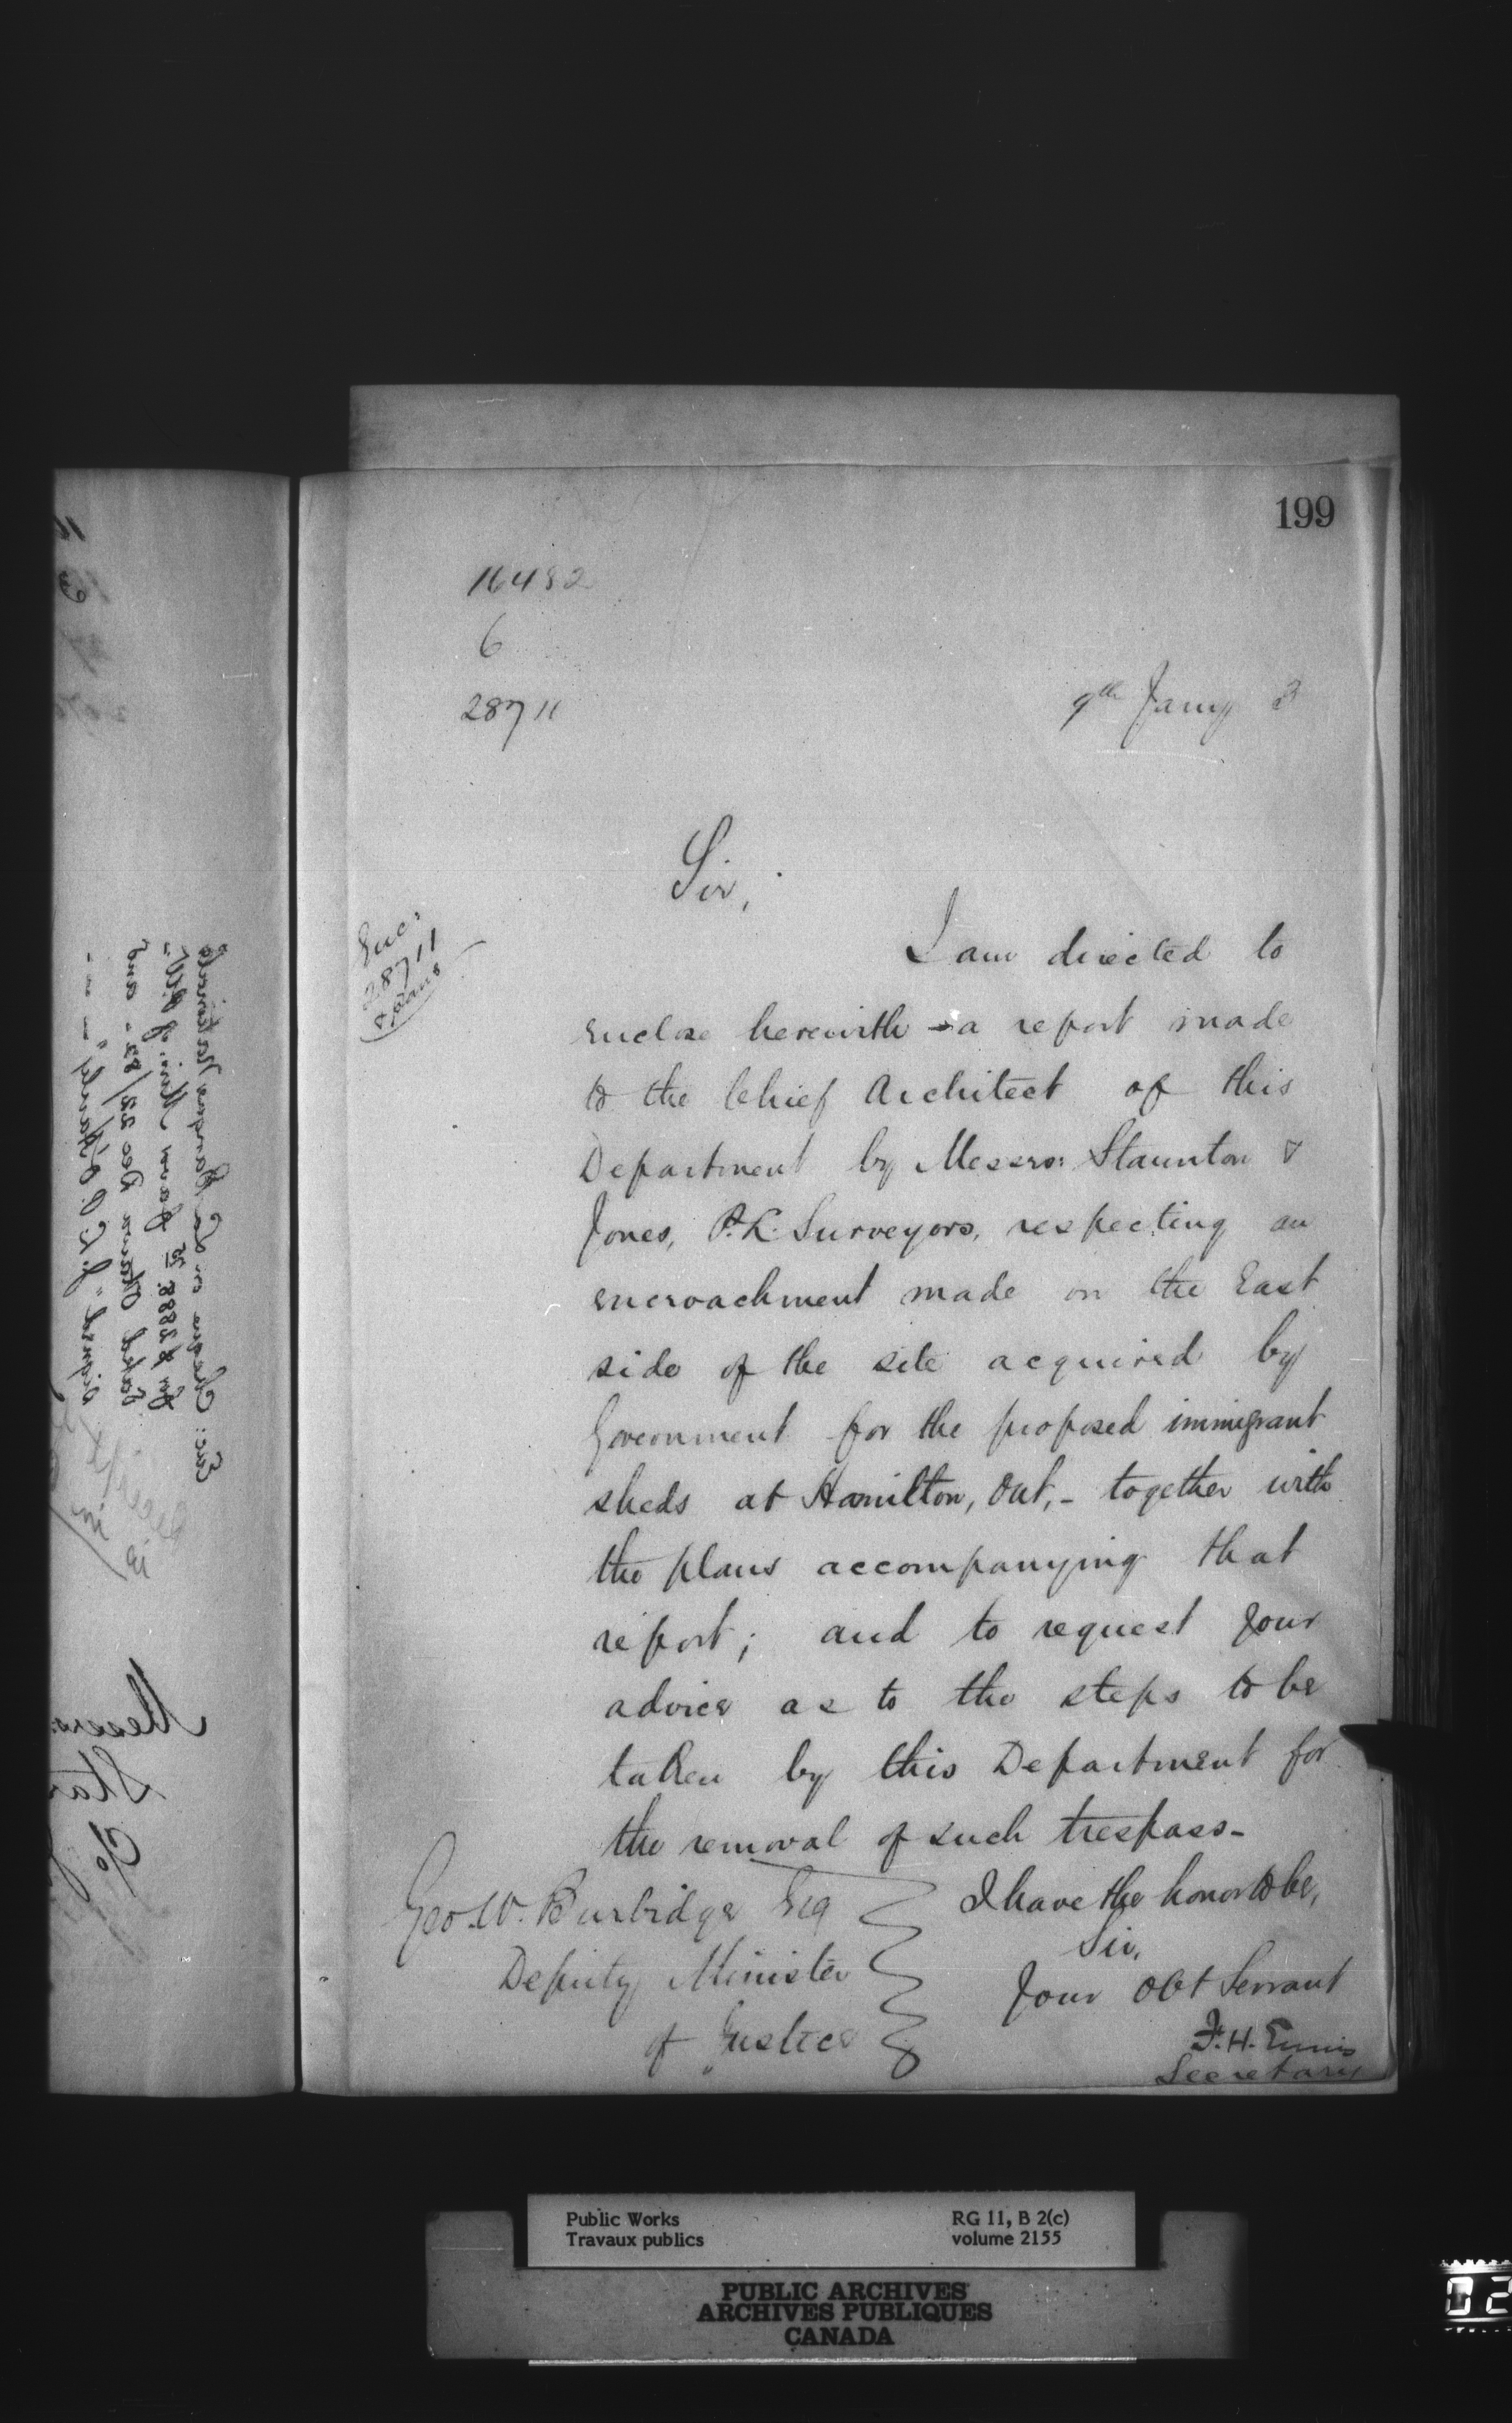 199
16482
6
28711
9th Jany 3
Sir,
Enc:
28711
& plans
I am directed to
enclose herewith - a report made
to the Chief Architect of this
Department by Messrs: Staunton &
Jones, P.L. Surveyors, respecting an
encroachment made on the East
side of the site acquired by
Government for the proposed immigrant
sheds at Hamilton, Ont, - together with
the plans accompanying that
report; and to request your
advice as to the steps to be
taken by this Department for
the removal of such trespass -
I have the honor to be,
Sir,
Your Obt Servant
F. H. Ennis
Secretary
Geo. W. Burbidge Esq
Deputy Minister
of Justice
Messrs:
Public Works
Travaux publics
RG 11, B 2(c)
volume 2155
PUBLIC ARCHIVES
ARCHIVES PUBLIQUES
CANADA
02